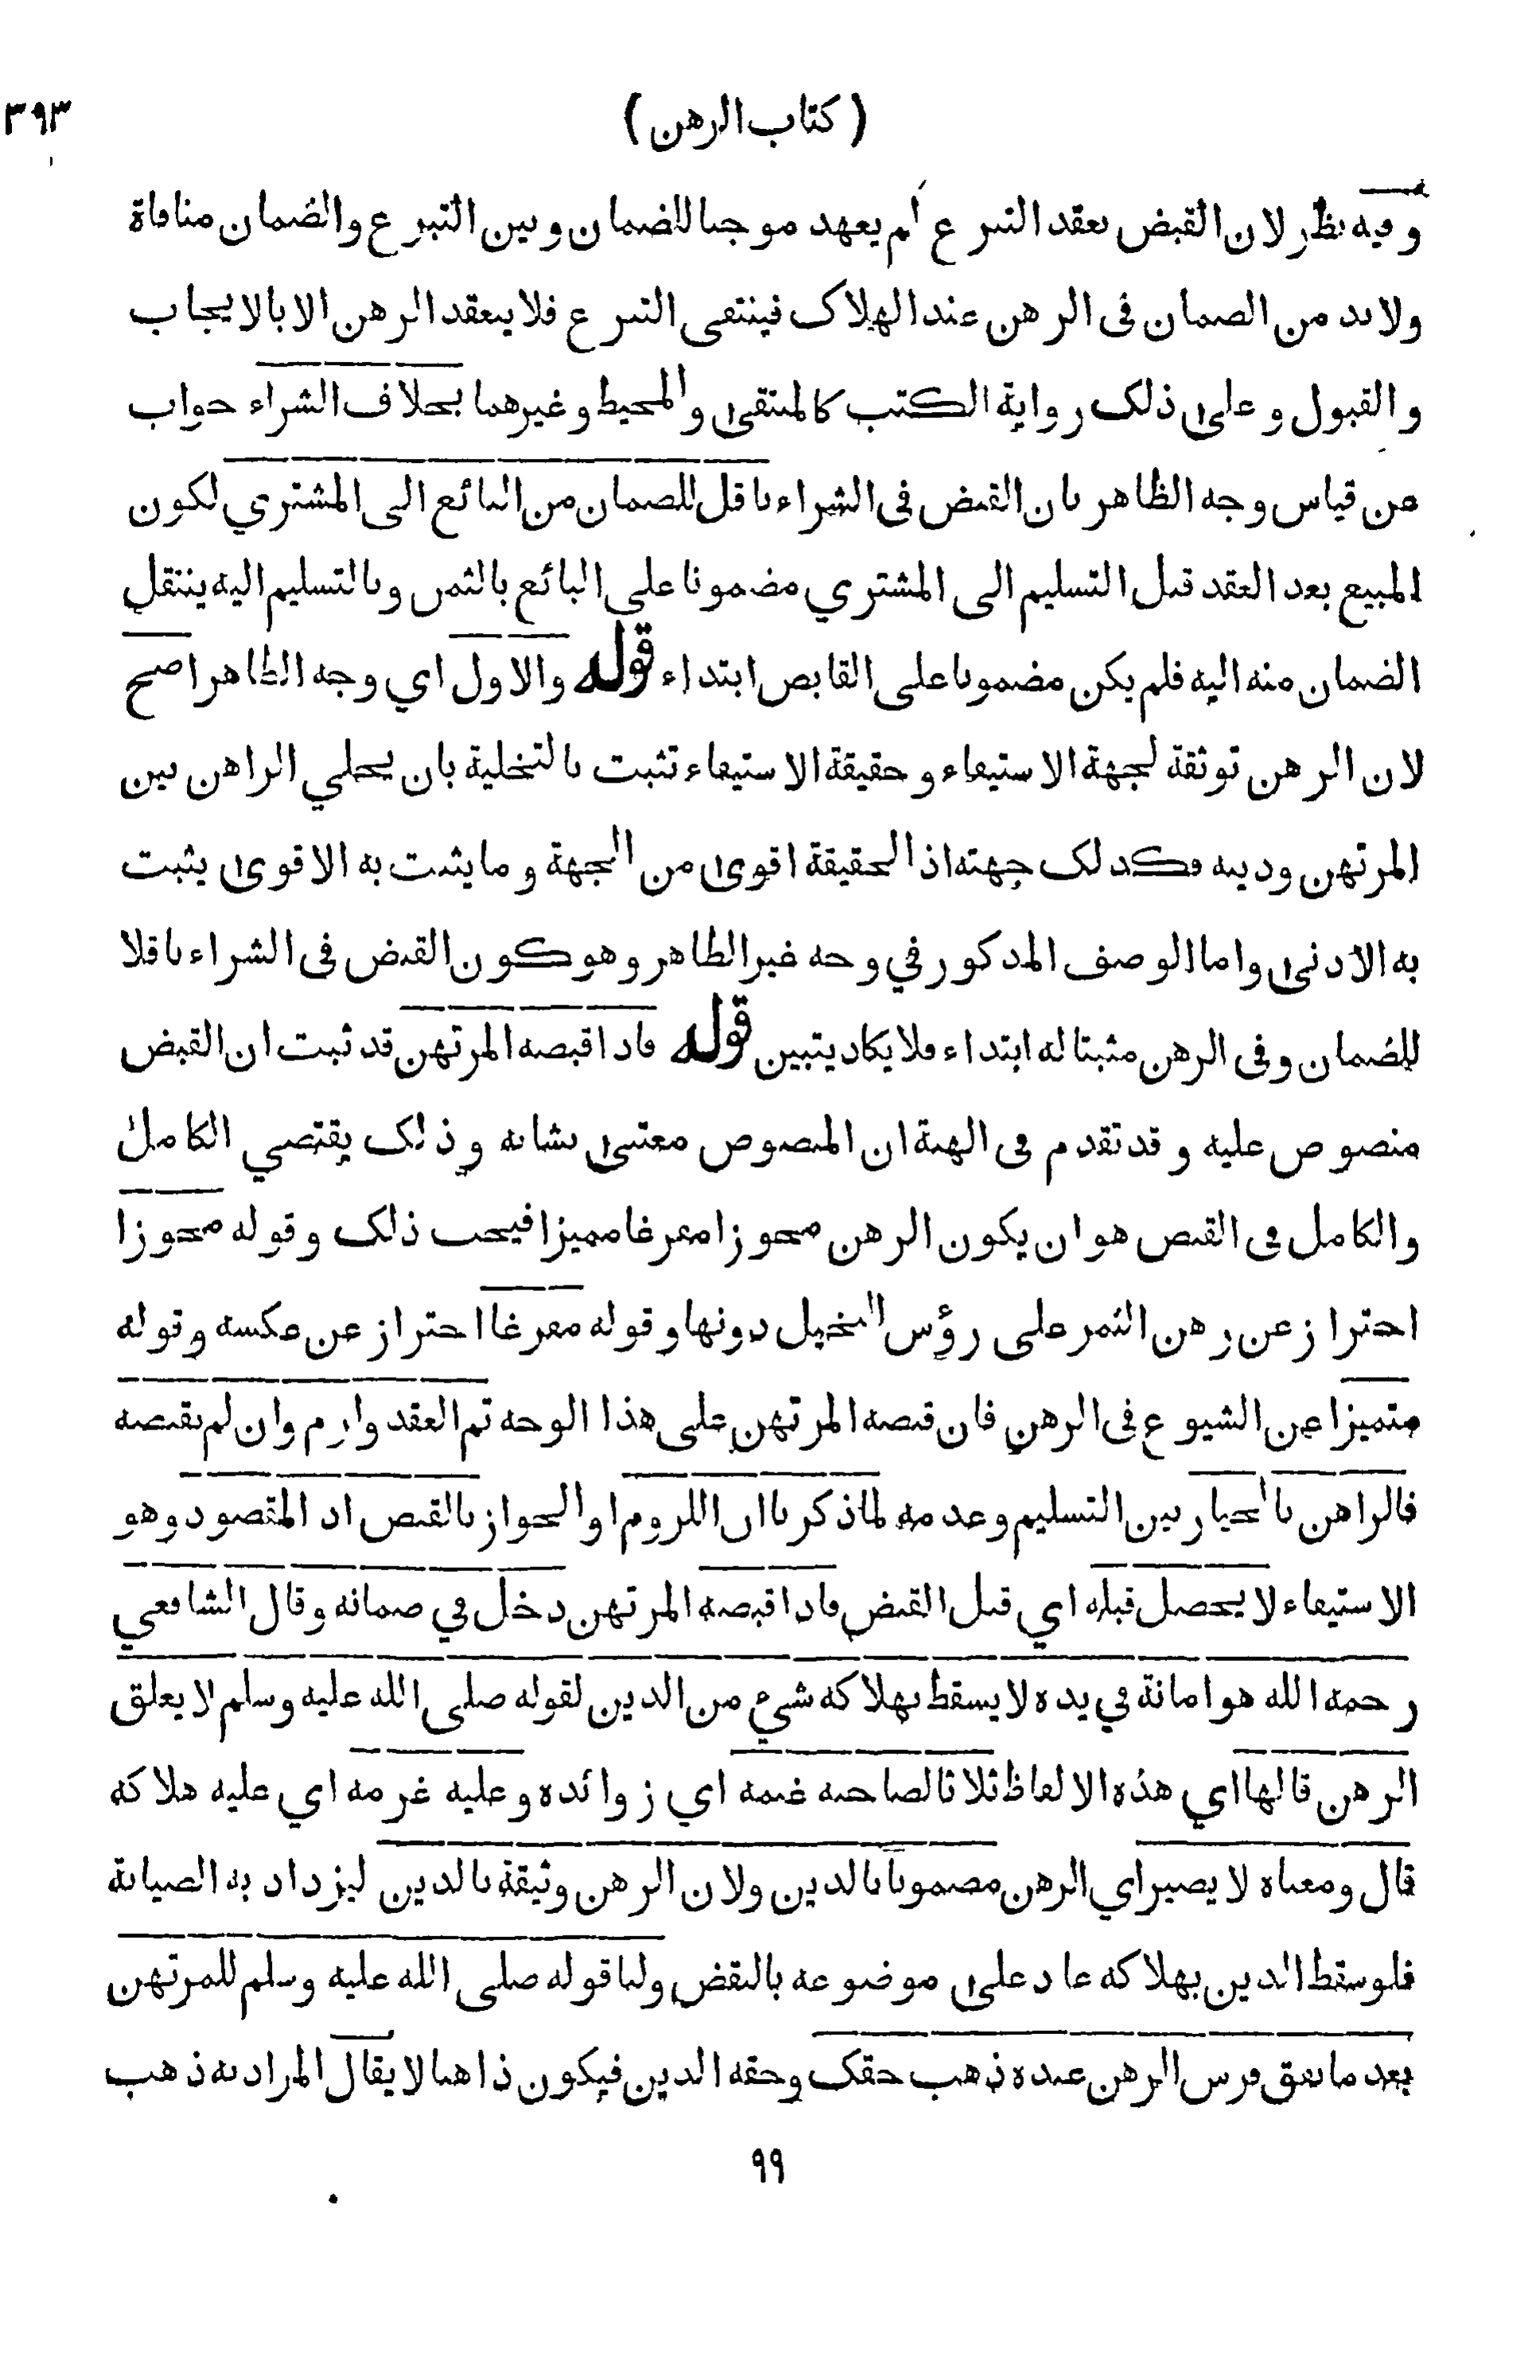 ( كتاب الرهن )
٣٩٣
وفيه نظر لان القبض بعقد التبرع لم يعهد موجبا للضمان وبين التبرع والضمان منافاة
ولابد من الضمان فى الرهن عند الهلاك فينتفى التبرع فلا ينعقد الرهن الا بالايجاب
والقبول وعلى ذلك رواية الكتب كالمنتقى والمحيط وغيرهما بخلاف الشراء جواب
عن قياس وجه الظاهر بان القبض فى الشراء ناقل للضمان من البائع الى المشتري لكون
المبيع بعد العقد قبل التسليم الى المشتري مضمونا على البائع بالثمن وبالتسليم اليه ينتقل
الضمان منه اليه فلم يكن مضمونا على القابض ابتداء قوله والاول اي وجه الظاهر اصح
لان الرهن توثقة لجهة الاستيفاء وحقيقة الاستيفاء تثبت بالتخلية بان يخلي الراهن بين
المرتهن ودينه فكذلك جهته اذ الحقيقة اقوى من الجهة وما يثبت به الاقوى يثبت
به الادنى واما الوصف المذكور في وجه غير الظاهر وهو كون القبض فى الشراء ناقلا
للضمان وفى الرهن مثبتا له ابتداء فلا يكاد يتبين قوله فاذا قبضه المرتهن قد ثبت ان القبض
منصوص عليه وقد تقدم فى الهبة ان المنصوص معتنى بشانه وذلك يقتضي الكامل
والكامل فى القبض هو ان يكون الرهن محوزا مفرغا مميزا فيجب ذلك وقوله محوزا
احترا زعن رهن الثمر على رؤس النخيل دونها وقوله مفرغا احتراز عن عكسه وقوله
متميزا عن الشيوع فى الرهن فان قبضه المرتهن على هذا الوجه تم العقد ولزم وان لم يقبضه
فالراهن بالخيار بين التسليم وعدمه لما ذكرنا ان اللزوم او الجواز بالقبض اذ المقصود وهو
الاستيفاء لا يحصل قبله اي قبل القبض فاذا قبضه المرتهن دخل في ضمانه وقال الشافعي
رحمه الله هو امانة في يده لا يسقط بهلاكه شيء من الدين لقوله صلى الله عليه وسلم لا يغلق
الرهن قالها اي هذه الالفاظ ثلاثا لصاحبه غنمه اي زوائده وعليه غرمه اي عليه هلاكه
قال ومعناه لا يصير اي الرهن مضمونا بالدين ولان الرهن وثيقة بالدين ليزداد به الصيانة
فلو سقط الدين بهلاكه عاد على موضوعه بالنقض ولنا قوله صلى الله عليه وسلم للمرتهن
بعد ما نفق فرس الرهن عنده ذهب حقك وحقه الدين فيكون ذاهبا لا يقال المراد به ذهب
٩٩